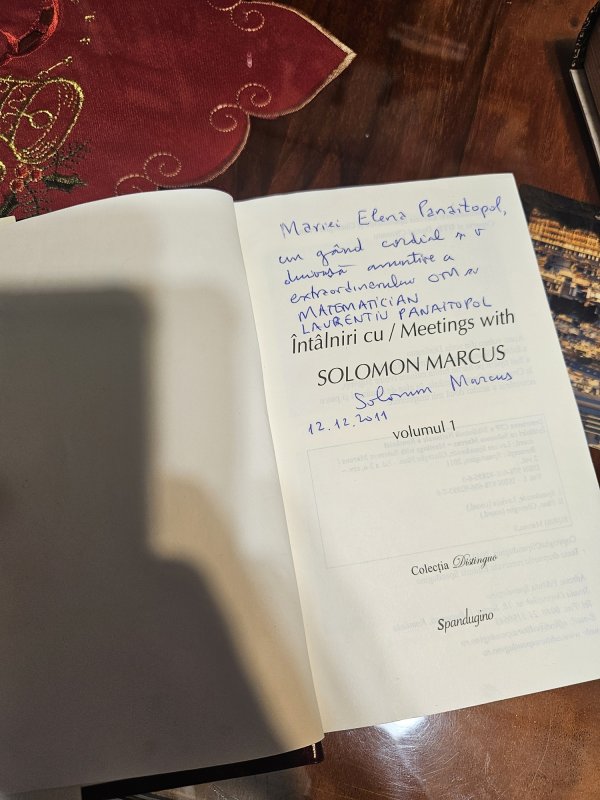 Mariei Elena Panaitopol,
un gând cordial și o
duioasă amintire a
extraordinarului OM și
MATEMATICIAN
LAURENȚIU PANAITOPOL
Întâlniri cu / Meetings with
SOLOMON MARCUS
Solomon Marcus
12.12.2011
volumul 1
Colecția Distinguo
Spandugino